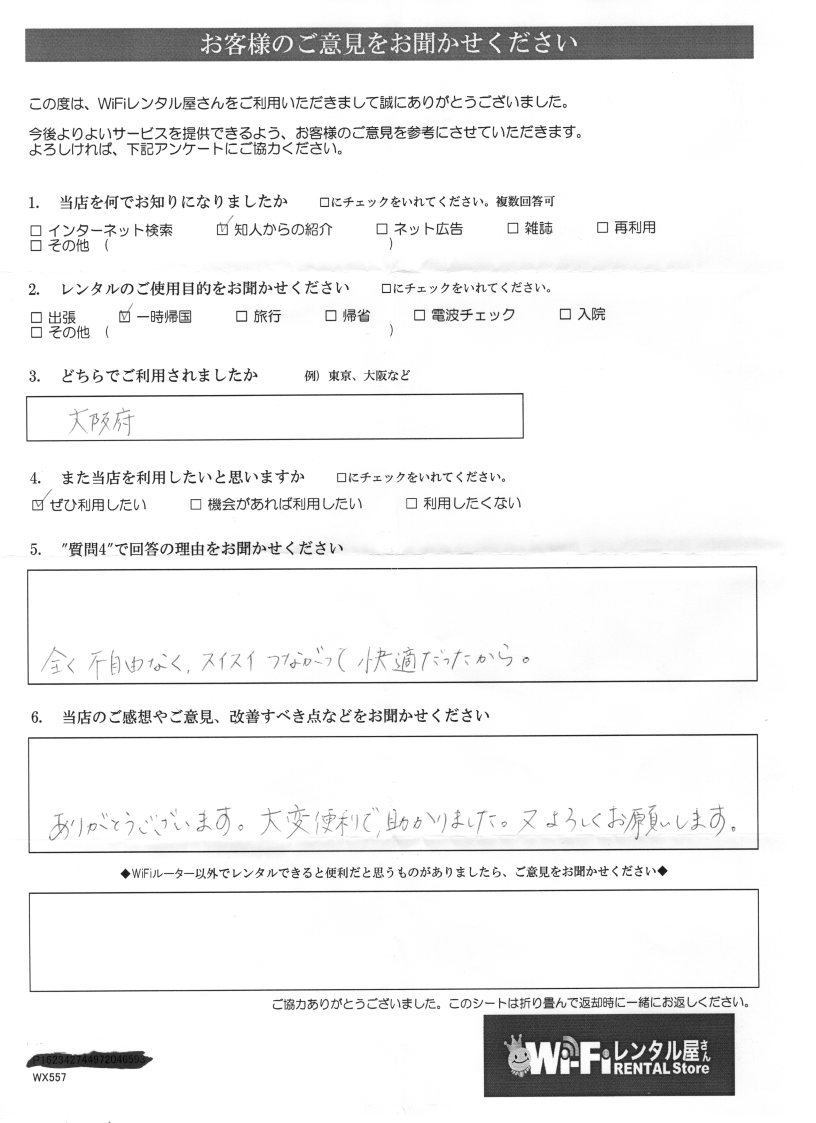 お客様のご意見をお聞かせください
この度は、WiFiレンタル屋さんをご利用いただきまして誠にありがとうございました。
今後よりよいサービスを提供できるよう、お客様のご意見を参考にさせていただきます。
よろしければ、下記アンケートにご協力ください。
1. 当店を何でお知りになりましたか □にチェックをいれてください。複数回答可
□ インターネット検索 ☑ 知人からの紹介 □ ネット広告 □ 雑誌 □ 再利用
□ その他 ( )
2. レンタルのご使用目的をお聞かせください □にチェックをいれてください。
□ 出張 ☑ 一時帰国 □ 旅行 □ 帰省 □ 電波チェック □ 入院
□ その他 ( )
3. どちらでご利用されましたか 例）東京、大阪など
大阪府
4. また当店を利用したいと思いますか □にチェックをいれてください。
☑ ぜひ利用したい □ 機会があれば利用したい □ 利用したくない
5. "質問4"で回答の理由をお聞かせください
全く不自由なく、スイスイつながって快適だったから。
6. 当店のご感想やご意見、改善すべき点などをお聞かせください
ありがとうございます。大変便利で助かりました。又よろしくお願いします。
◆WiFiルーター以外でレンタルできると便利だと思うものがありましたら、ご意見をお聞かせください◆
ご協力ありがとうございました。このシートは折り畳んで返却時に一緒にお返しください。
WX557
Wi-Fiレンタル屋さん
RENTAL Store